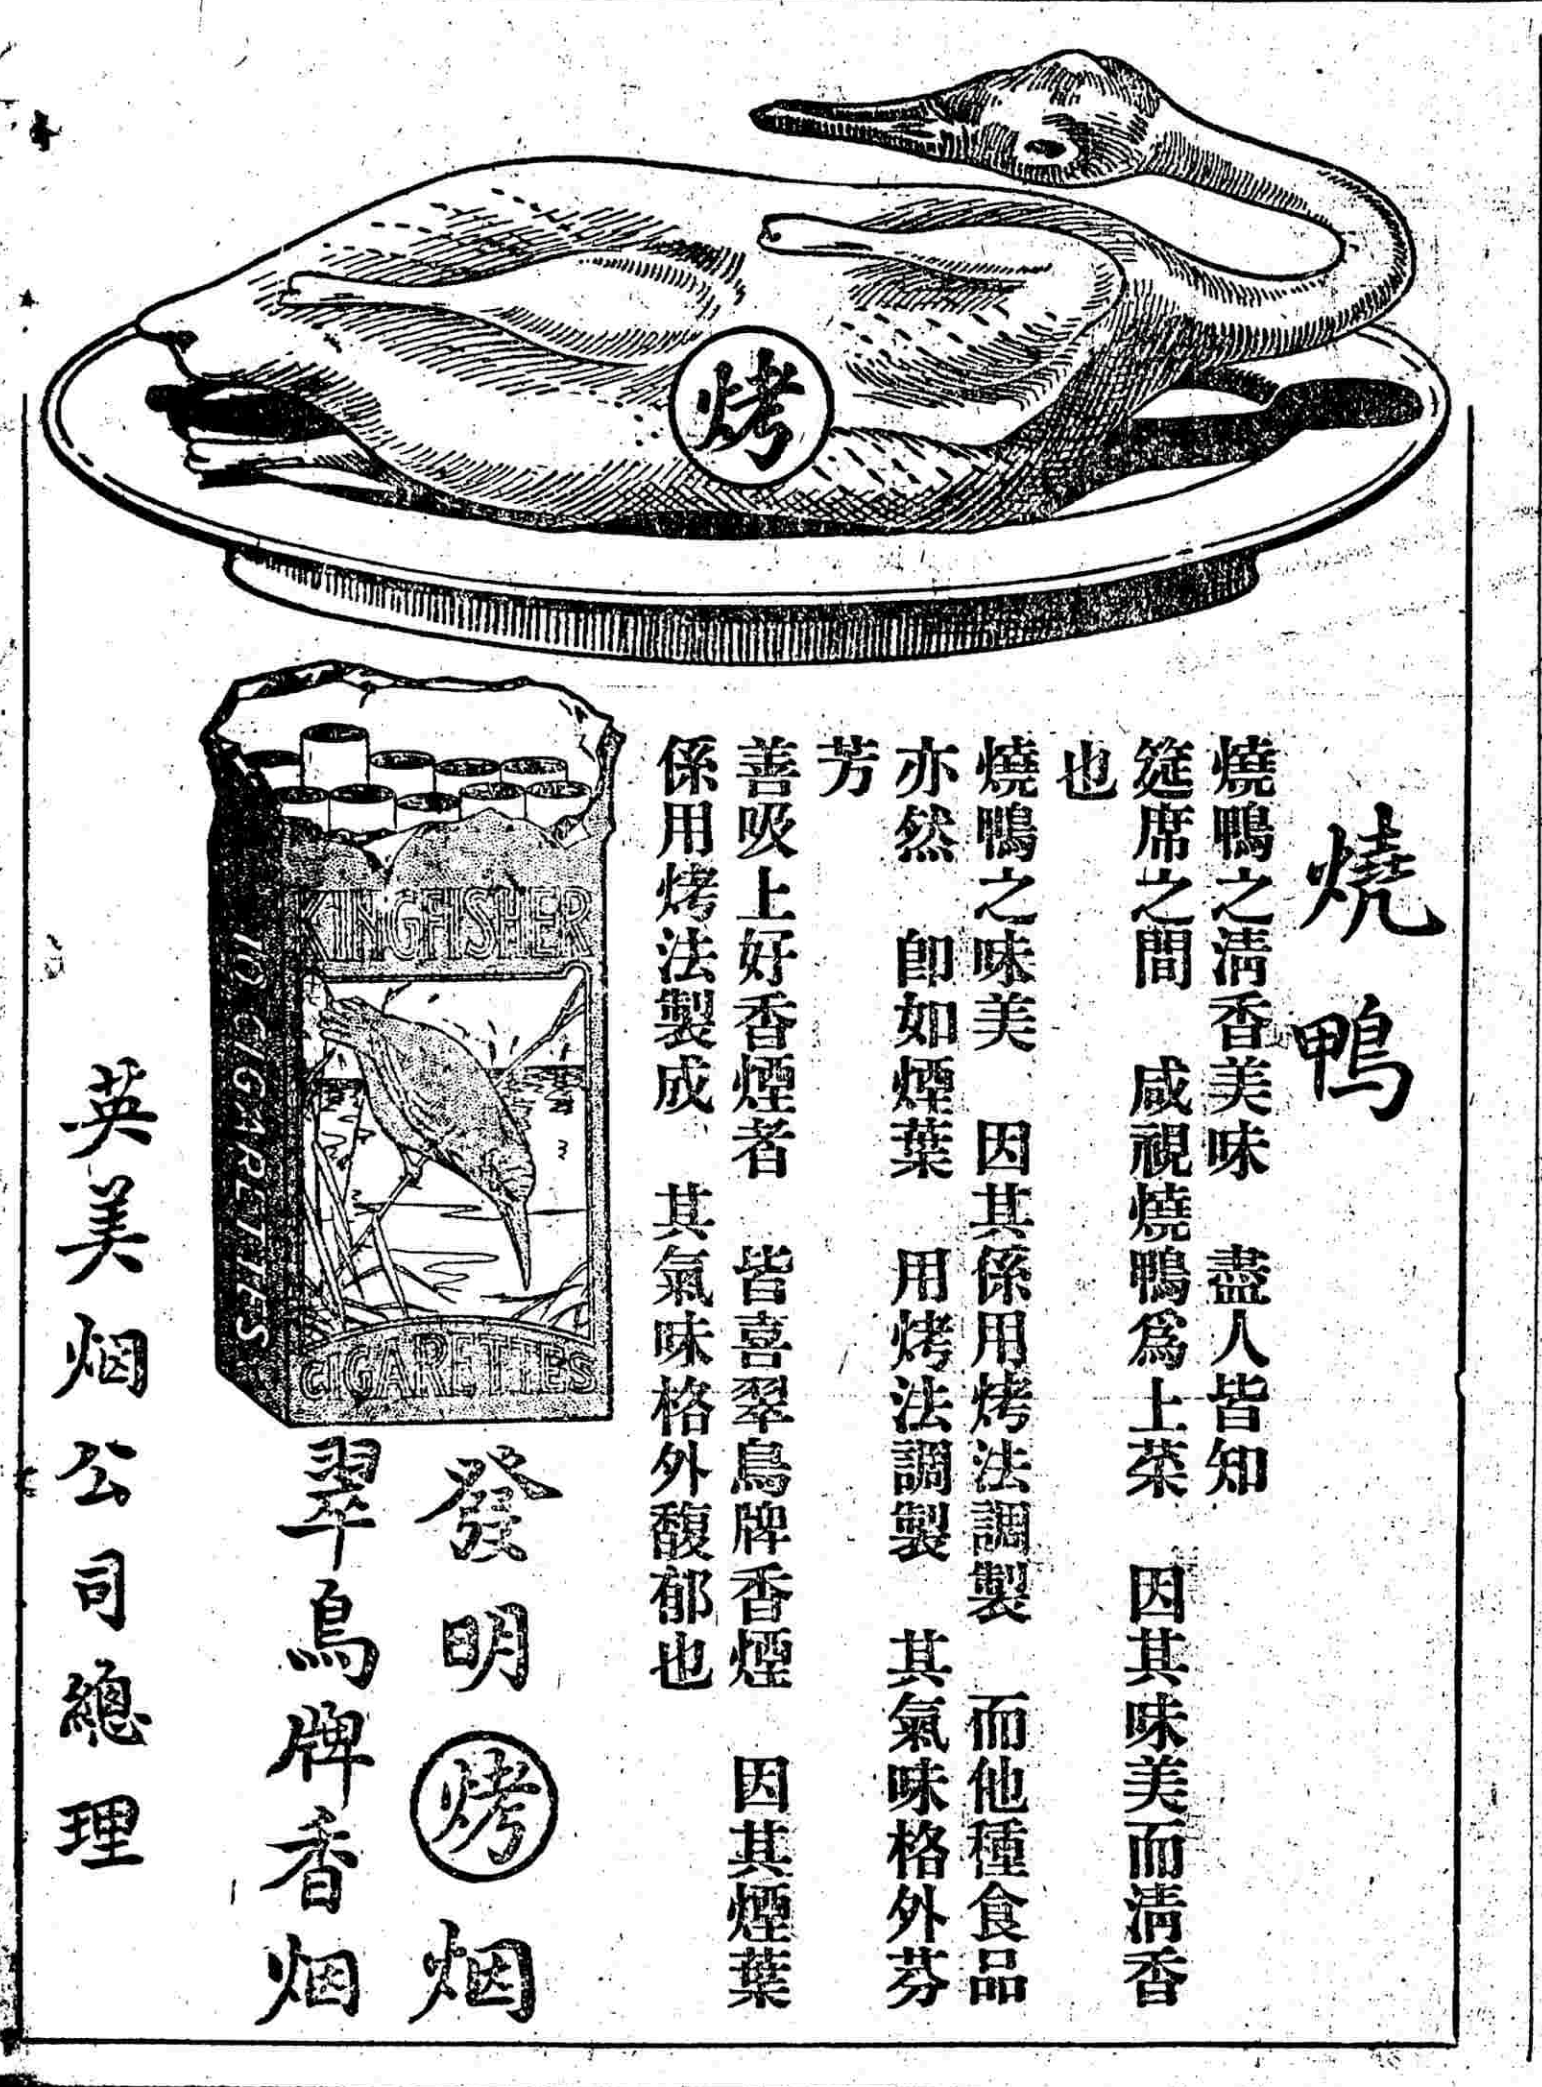 烤
燒鴨
燒鴨之清香美味　盡人皆知
筵席之間　咸視燒鴨爲上菜　因其味美而清香
也
燒鴨之味美　因其係用烤法調製　而他種食品
亦然　卽如煙葉　用烤法調製　其氣味格外芬
芳
善吸上好香煙者　皆喜翠鳥牌香煙　因其煙葉
係用烤法製成　其氣味格外馥郁也
KINGFISHER
CIGARETTES
10 CIGARETTES
發明烤烟
翠鳥牌香烟
英美烟公司總理